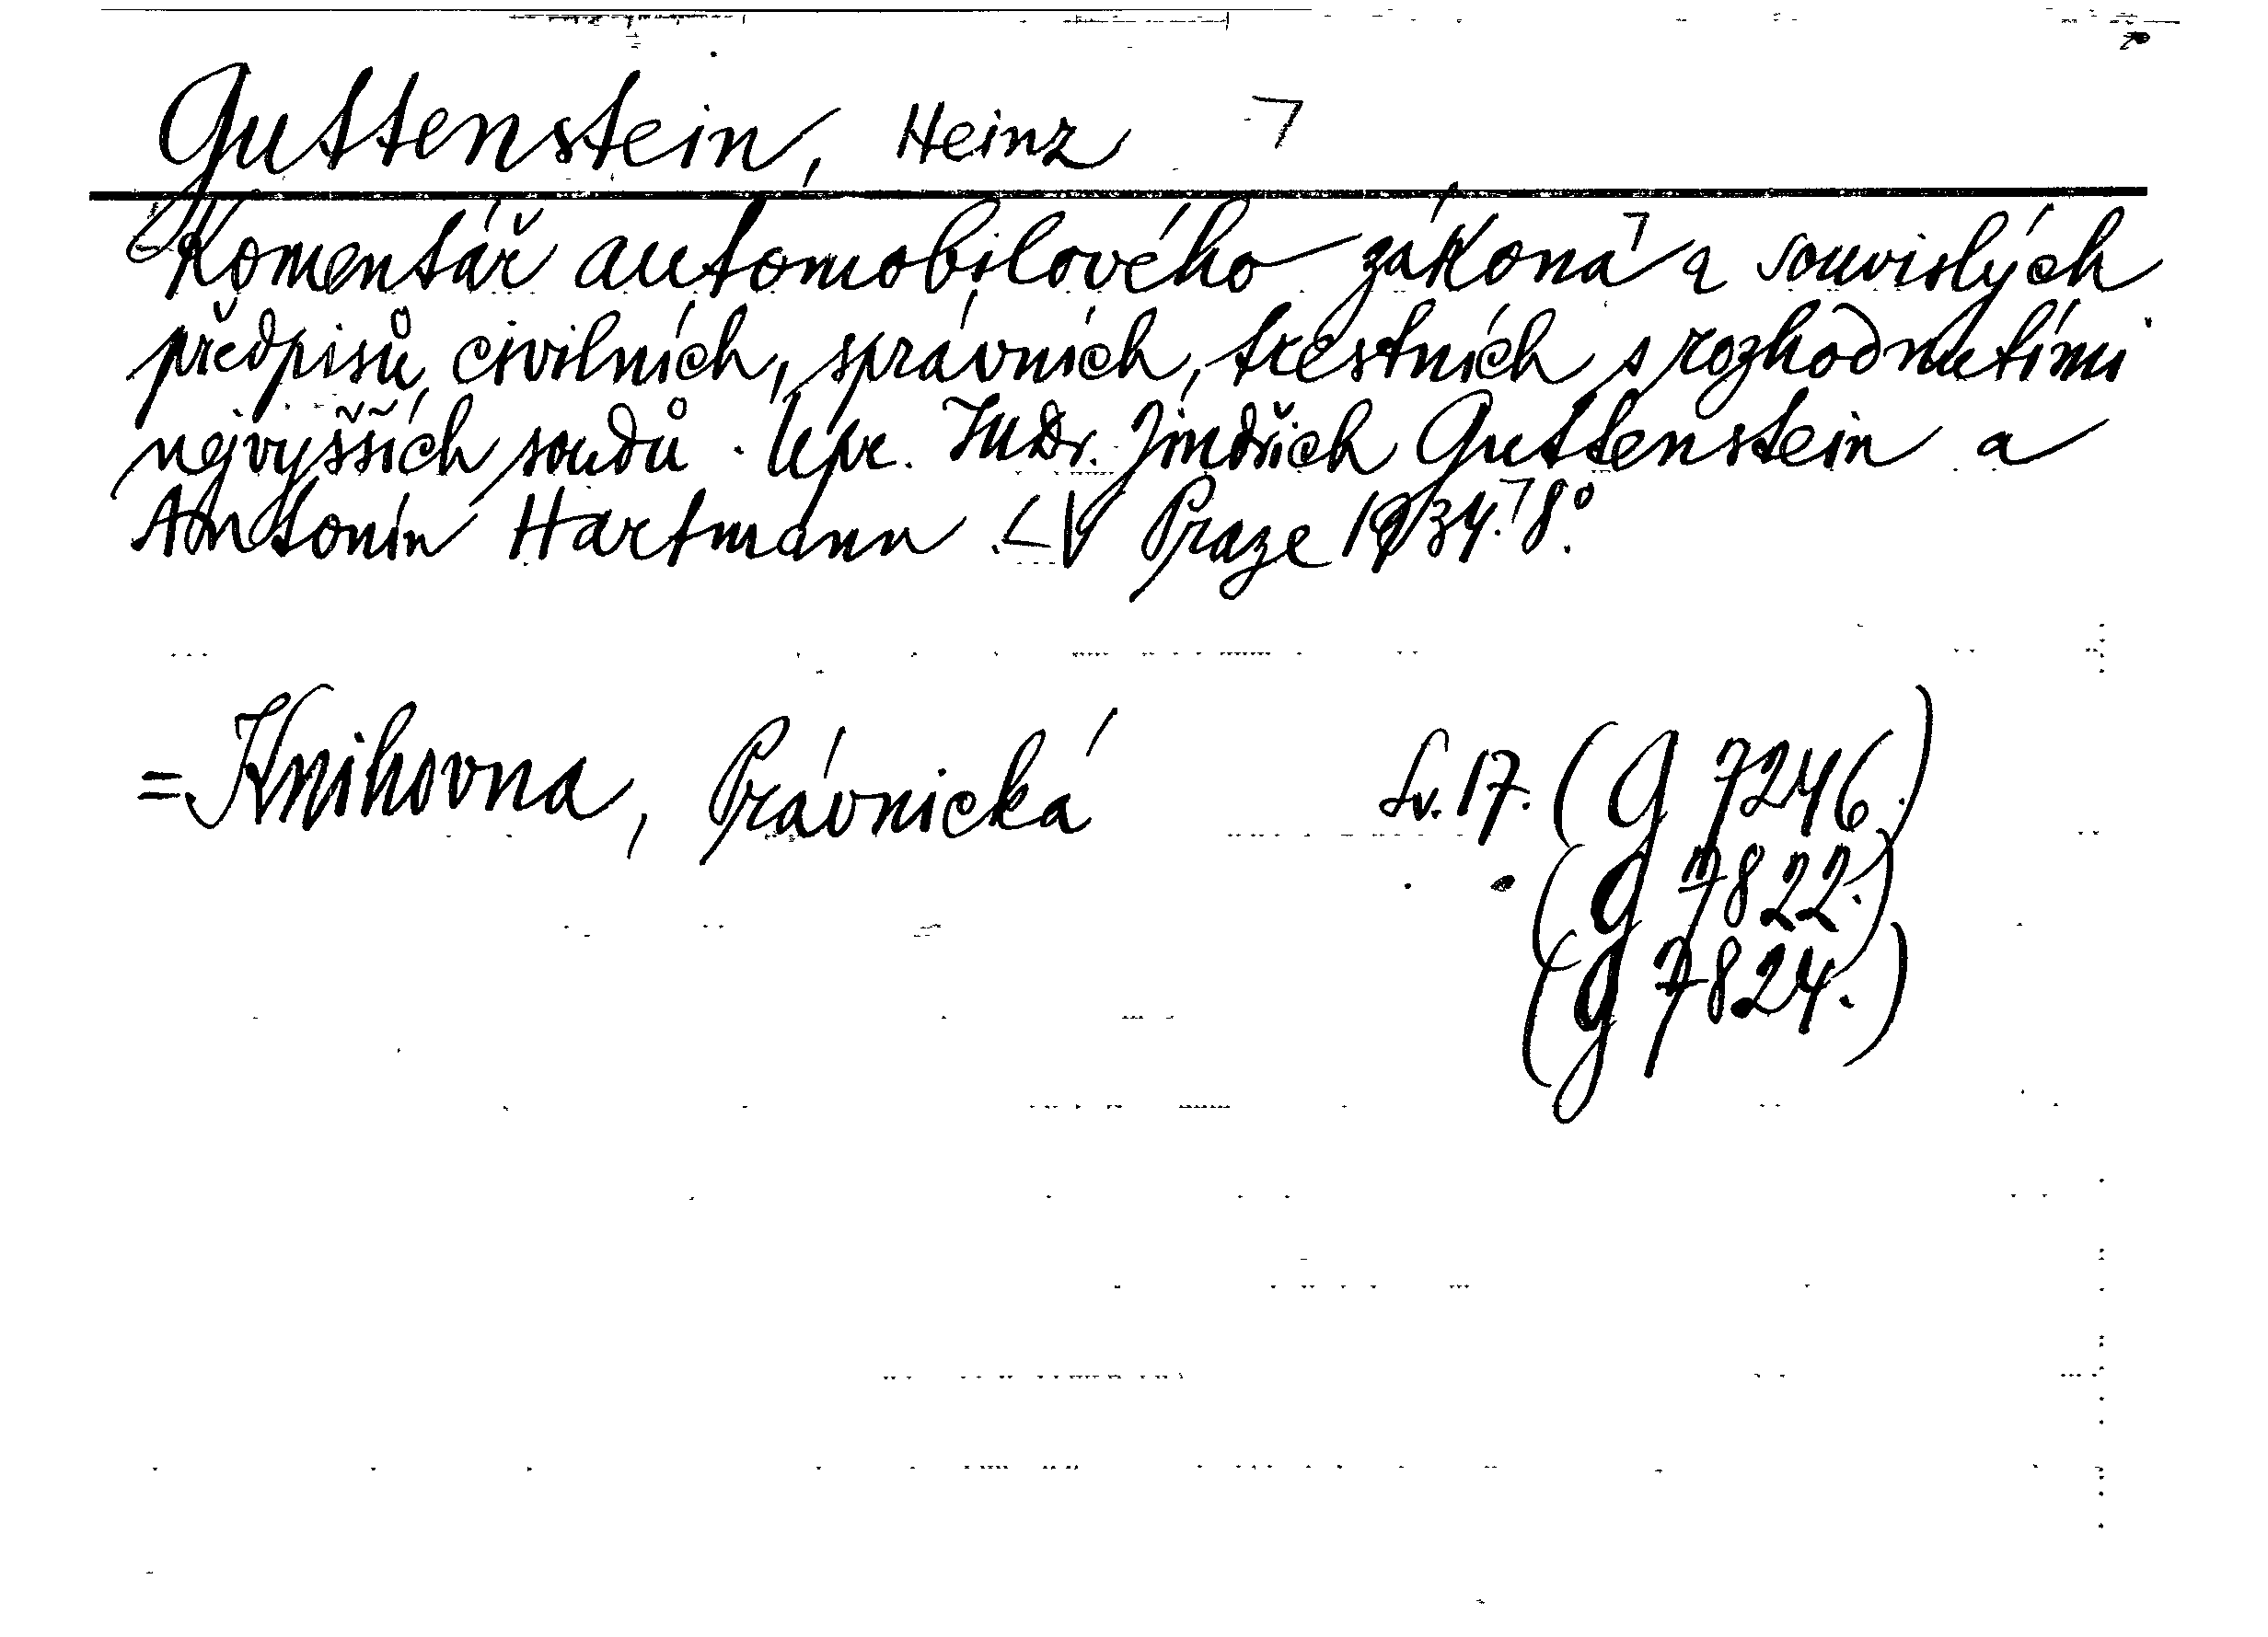 Guttenstein, Heinz
Komentář automobilového zákona a souvislých
předpisů civilních, správních, trestních s rozhodnutími
nejvyšších soudů. Upr. JUDr. Jindřich Guttenstein a
Antonín Hartmann. V Praze 1934. 8°.
= Knihovna, Právnická Sv. 17. (G 7246.)
(G 7822.)
(G 7824.)